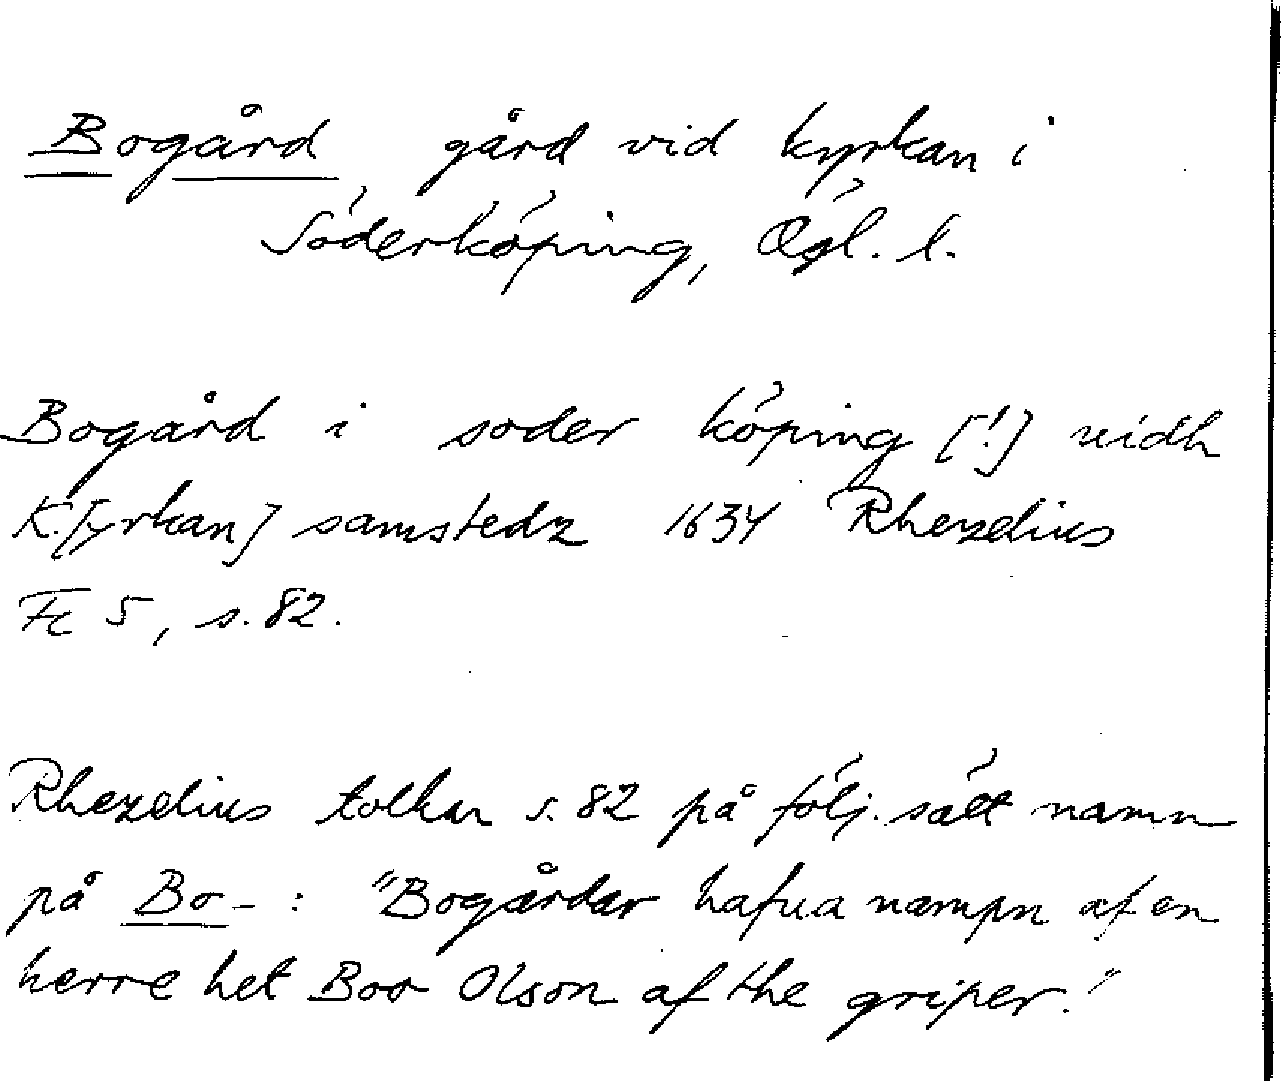 Bogård gård vid kyrkan i
Söderköping, Ögl. l.
Bogård i soder köping [!] widh
K.[yrkan] samstedz 1634 Rhezelius
Fc 5, s. 82.
Rhezelius tolkar s. 82 på följ. sätt namn
på Bo- : "Bogårdar hafua nampn af en
herre het Boo Olson af the griper."